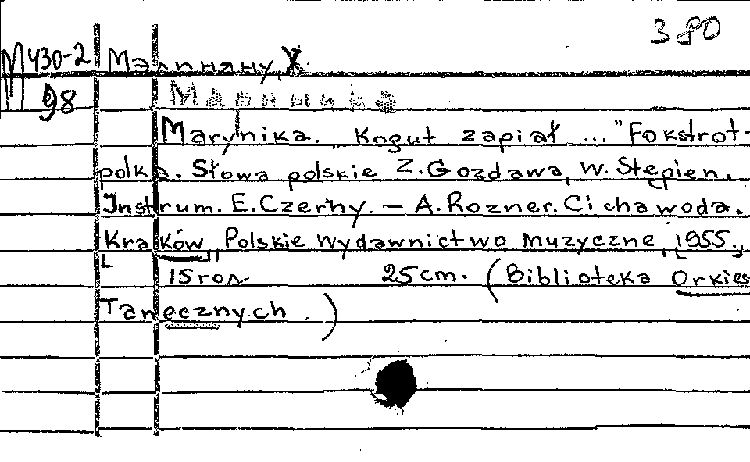 380
М430-2 Марпнану, Х.
98 Марииика
Marynika. Kogut zapiał ... "Fokstrot-
polka. Słowa polskie Z.Gozdawa, W. Stępien.
Instrum. E.Czerny. — A.Rozner. Cicha woda.
Kraków, Polskie Wydawnictwo Muzyczne, 1955,
15 гол. 25cm. (Biblioteka Orkies
Tanecznych.)